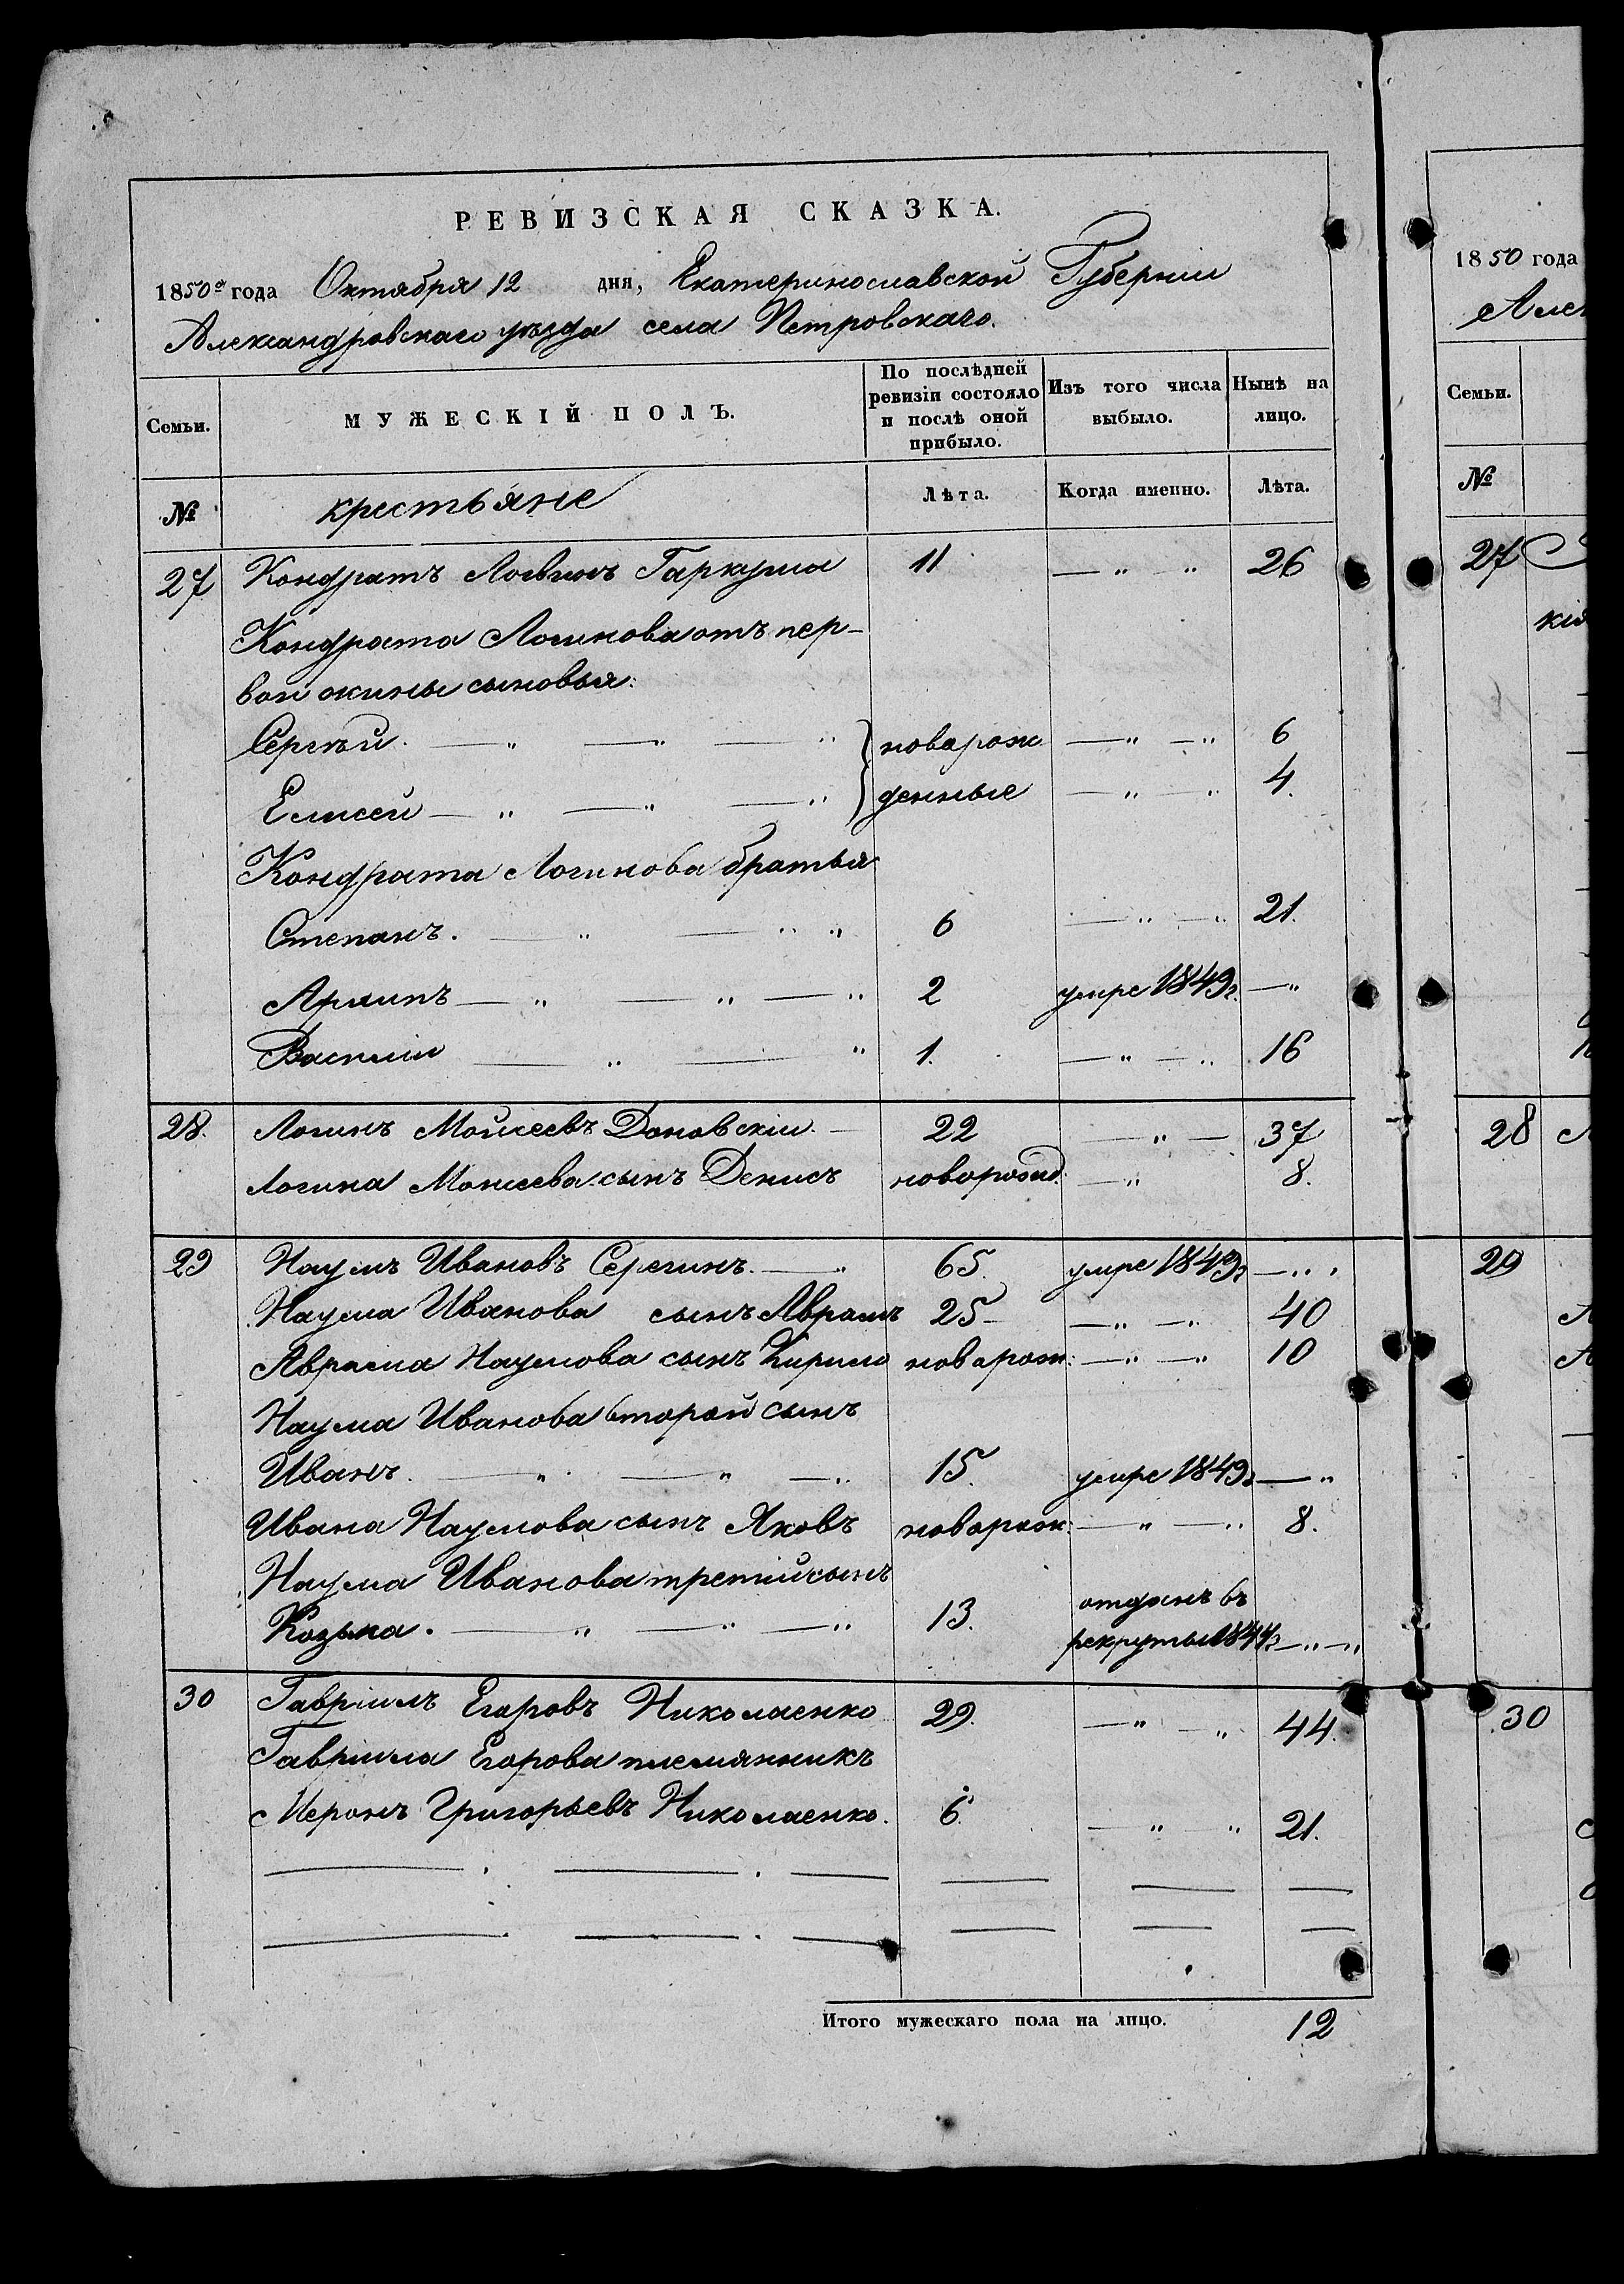 РЕВИЗСКАЯ СКАЗКА.
1850го года Октября 12 дня, Екатеринославской Губернии
Александровскаго уѣзда села Петровскаго.
Семьи. МУЖЕСКІЙ ПОЛЪ. По послѣдней ревизіи состояло и послѣ оной прибыло. Изъ того числа выбыло. Нынѣ на лицо.
№ крестьяне Лѣта. Когда именно. Лѣта.
27 Кондратъ Логвинъ Гаркуша 11 — " " 26
Кондрата Логинова отъ пер-
вои жины сыновья:
Сергѣй. — " — " — " новорож — " — " 6
Елисей — " — " — " денные — " — " 4.
Кондрата Логинова братья
Степанъ. — " — " " 6 — " — " 21.
Архипъ — " — " — " 2 умре 1849г. — "
Василій — " — " 1. — " — " 16
28. Логинъ Мойсеевъ Доновскіи — 22 — " — 37
Логина Моисеева сынъ Денисъ новорожд. — " 8.
29 Наумъ Ивановъ Серегинъ. — " 65. умре 1849г — " "
Наума Иванова сынъ Аврамъ 25- — " — " 40
Аврама Наумова сынъ Кирило новорож: — " — " 10
Наума Иванова второй сынъ
Иванъ. — " — " — " 15. умре 1849г — "
Ивана Наумова сынъ Яковъ новорож: — " — " 8.
Наума Иванова третій сынъ
Козьма. — " — " — " 13. отданъ въ
рекруты 1844г — " — "
30 Гавріилъ Егоровъ Николаенко 29. — " — " 44.
Гавріила Егорова племянникъ
Меронъ Григорьевъ Николаенко. 6. — " — " 21.
Итого мужескаго пола на лицо. 12
1850 года
Алек
Семьи.
№
27
кія
28
29
30